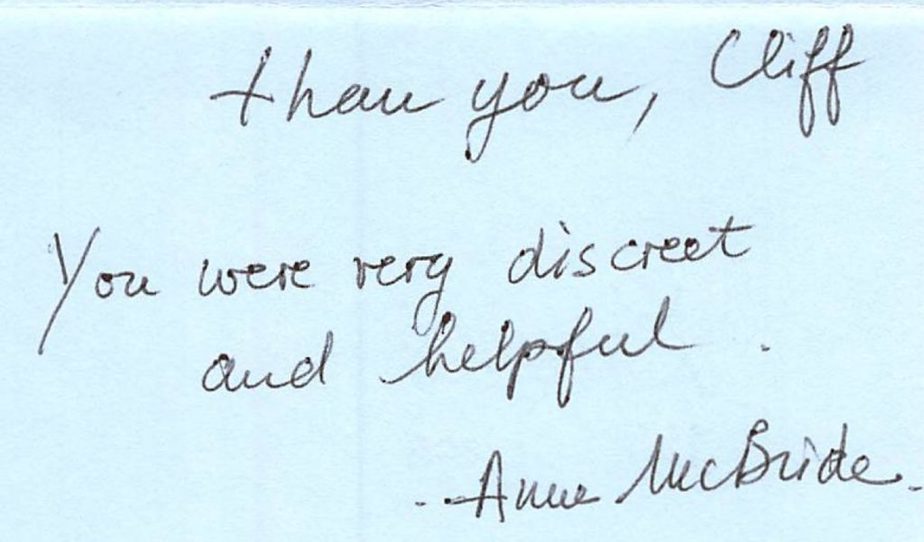 thau you, Cliff
You were very discreet
and helpful.
- Anne McBride.